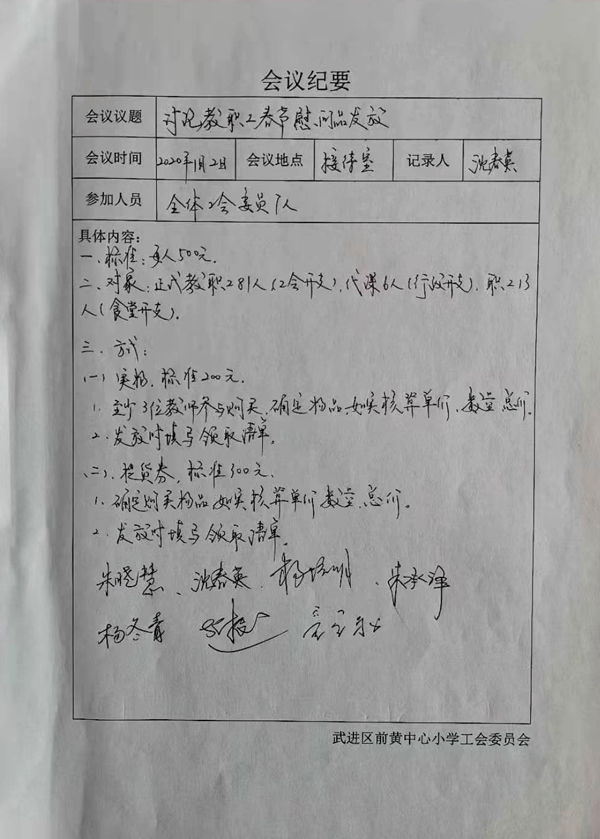 会议纪要
会议议题 讨论教职工春节慰问品发放
会议时间 2020年1月2日 会议地点 接待室 记录人 沈春英
参加人员 全体工会委员7人
具体内容：
一、标准：每人500元。
二、对象：正式教职工81人（工会开支）、代课6人（行政开支）、职工13
人（食堂开支）。
三、方式：
（一）实物，标准200元。
1、至少3位教师参与购买，确定物品如实核算单价、数量、总价。
2、发放时填写领取清单。
（二）、提货券，标准300元。
1、确定购买物品如实核算单价数量、总价。
2、发放时填写领取清单。
朱晓慧、沈春英、杨培明、朱永泽
杨冬青
武进区前黄中心小学工会委员会